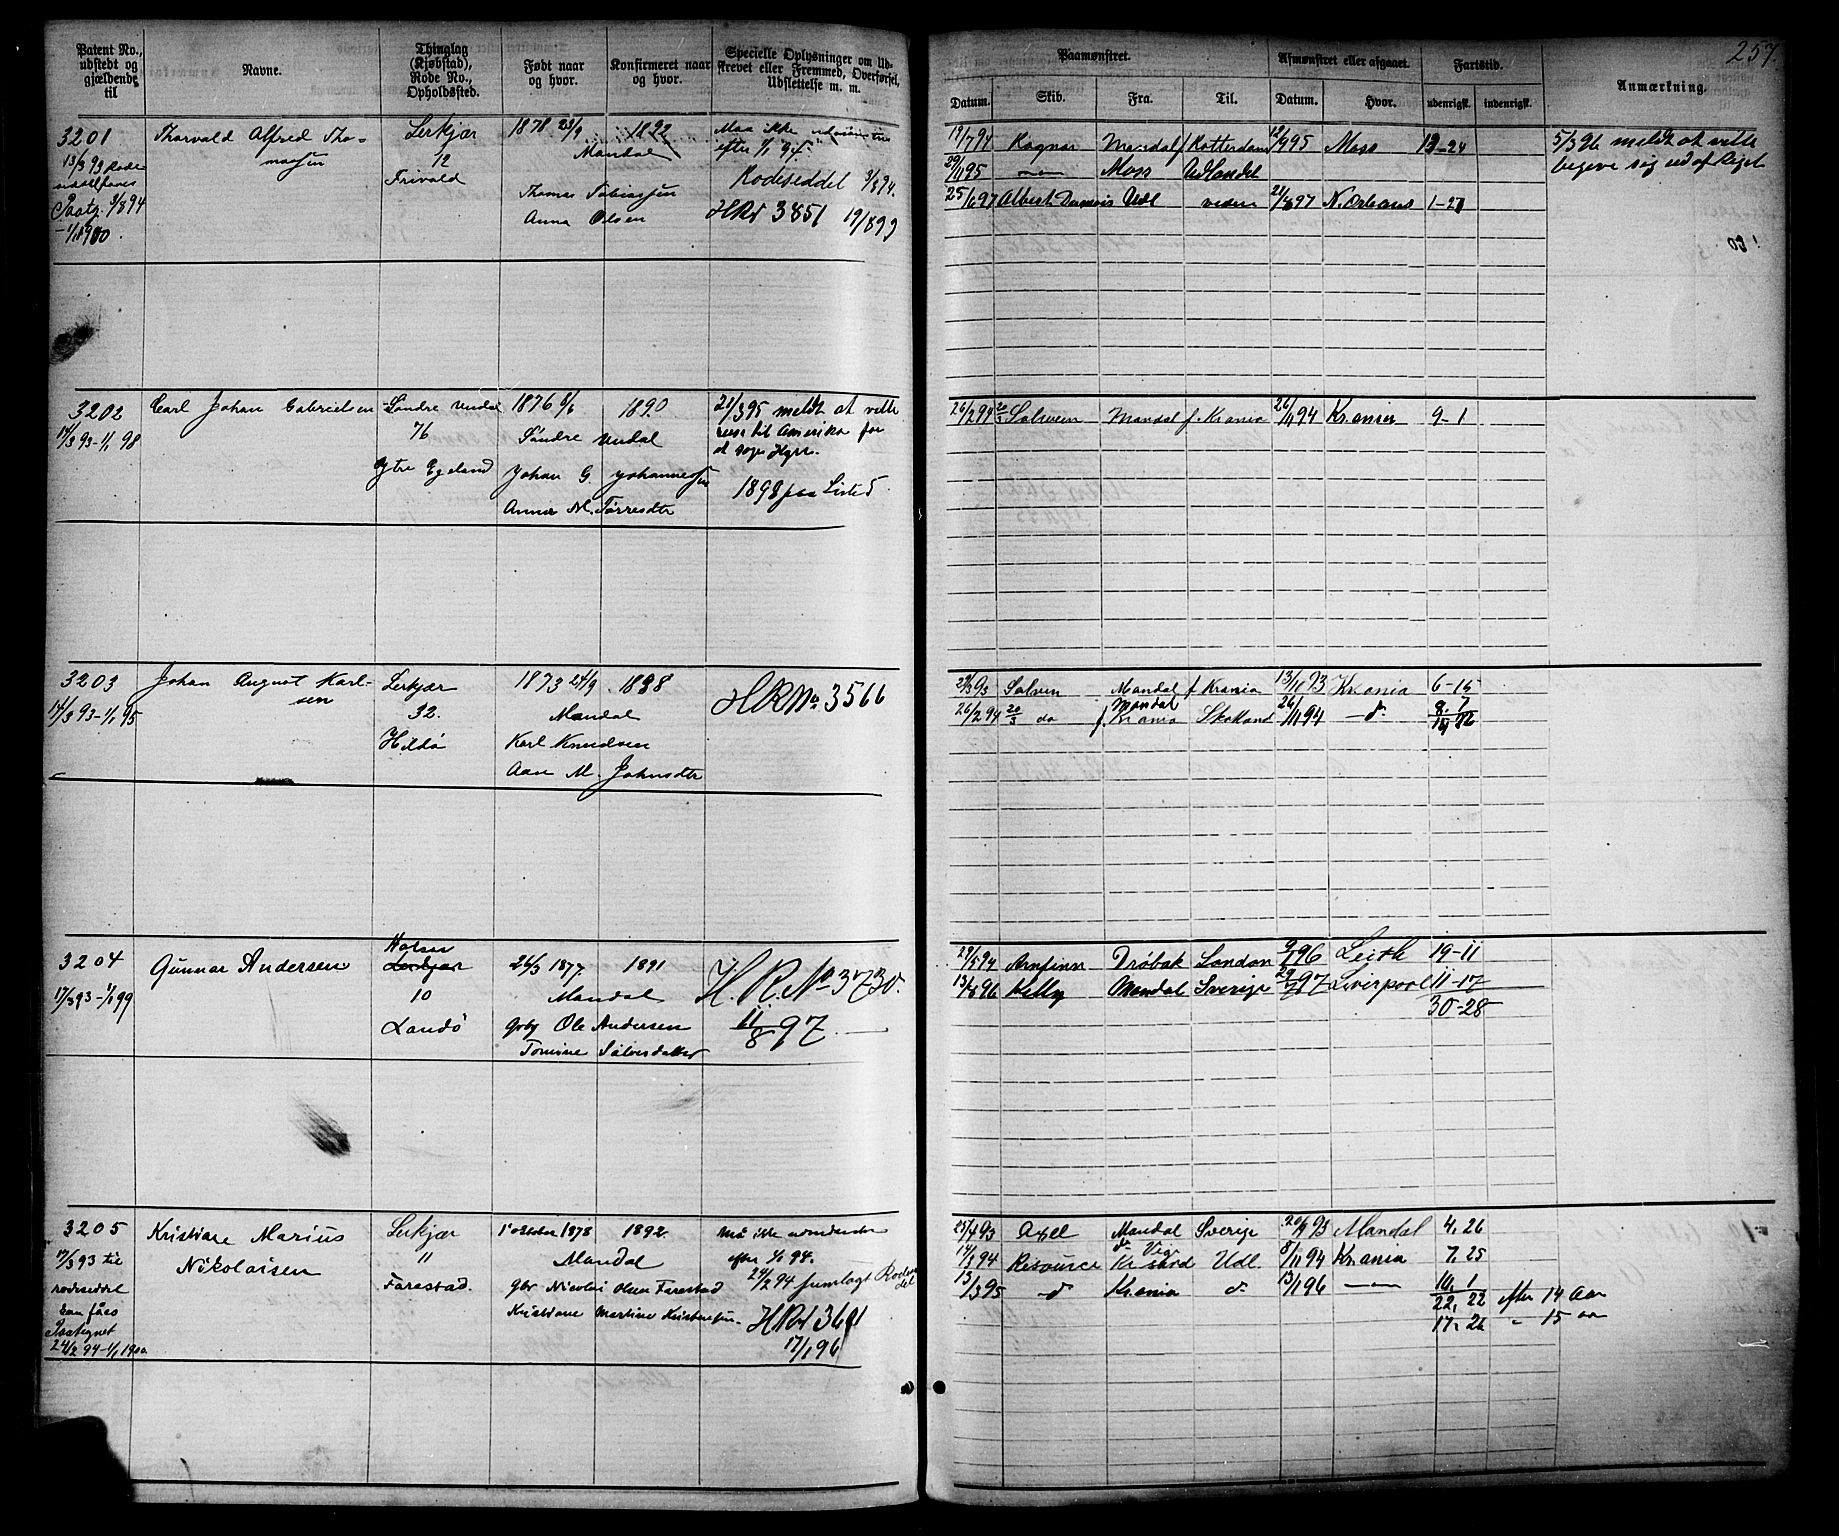 257.
Patent No., udstedt og gjældende til
Navne.
Thinglag (Kjøbstad), Rode No., Opholdssted.
Født naar og hvor.
Konfirmeret naar og hvor.
Specielle Oplysninger om Udskrevet eller Fremmed, Overførsel, Udslettelse m. m.
Paamønstret.
Datum.
Skib.
Fra.
Til.
Afmønstret eller afgaaet.
Datum.
Hvor.
Fartstid.
udenrigsk.
indenrigsk.
Anmærkning.
3201
13/3 93 Rode
Paateg. 3/8 94
-1/1 1900.
Thorvald Alfred Tho-
massen
Lerkjær
12
Frivold
1878 23/9 1892
Mandal
Thomas Tobiassen
Anna Olsen
Maa ikke
efter 1/1 94.
Rodeseddel 3/8 94.
HRN 3851 19/8 99
19/7 94 Ragnar Mandal f Rotterdam 12/9 95 Moss 13-24
29/11 95 Moss Udlandet
25/6 97 Albert Udl viden 21/8 97 N. Orleans 1-27
5/3 96 meldt at ville
begive sig ud af Riget
3202
14/3 93-1/1 98
Carl Johan Gabrielsen
Søndre Undal
76
Ytre Egeland
1876 8/6 1890
Søndre Undal
Johan G. Johannessen
Anna M. Tørresdtr
21/3 95 meldt at ville
reise til Amerika for
1898 paa Listed
26/2 94 20/3 Solveien Mandal f. Krania 26/11 94 Krania 9-1
3203
14/3 93-1/1 95
Johan August Karl-
sen
Lerkjær
32.
Hildø
1873 24/9 1888
Mandal
Karl Knudsen
Aase M. Johnsdtr
HRNo 3566
22/3 93 Solvein Mandal f Krania 13/11 93 Krania 6-15
Mandal
26/2 94 20/3 do f. Krania Skotland 26/11 94 8. 7
3204
17/3 93-1/1 99
Gunnar Andersen
Halsaa
Lerkjær
10
Landø
26/3 1877 1891
Mandal
Gbr Ole Andersen
Tomine Sølvesdatter
H. R. No 3730.
11/8 97.
29/5 94 Arnfinn Drøbak London 9/1 96 Leith 19-11
13/8 96 Kelly Mandal Sverige 29/7 97 Liverpool 11-17
30-28
3205
17/3 93 til
rodeseddel
kan fåes
Paategnet
24/2 94-1/1 1900
Kristiane Marius
Nikolaisen
Lerkjær
11
Farestad.
1 oktober 1878 1892
Mandal
Gbr Nicolai Olsen Farestad
Kristiane Martine Kristensen.
Må ikke
efter 1/1 94.
24/2 94 fremlagt Rodesed
del
HRN 3601
17/1 96
25/4 93 Axel Mandal Sverige 20/9 93 Mandal 4, 26
14/3 94 Risource Udl. 8/11 94 Krania 7, 25
13/3 95 do Krania do 13/1 96 10, 1
22, 22 efter 14 Aar
17, 26 " 15 aar